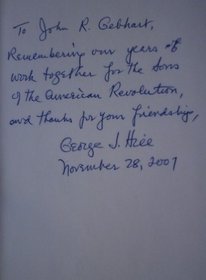 To John R. Gebhart,
Remembering our years of
work together for the Sons
of the American Revolution,
and thanks for your friendship,
George J. Hill
November 28, 2007